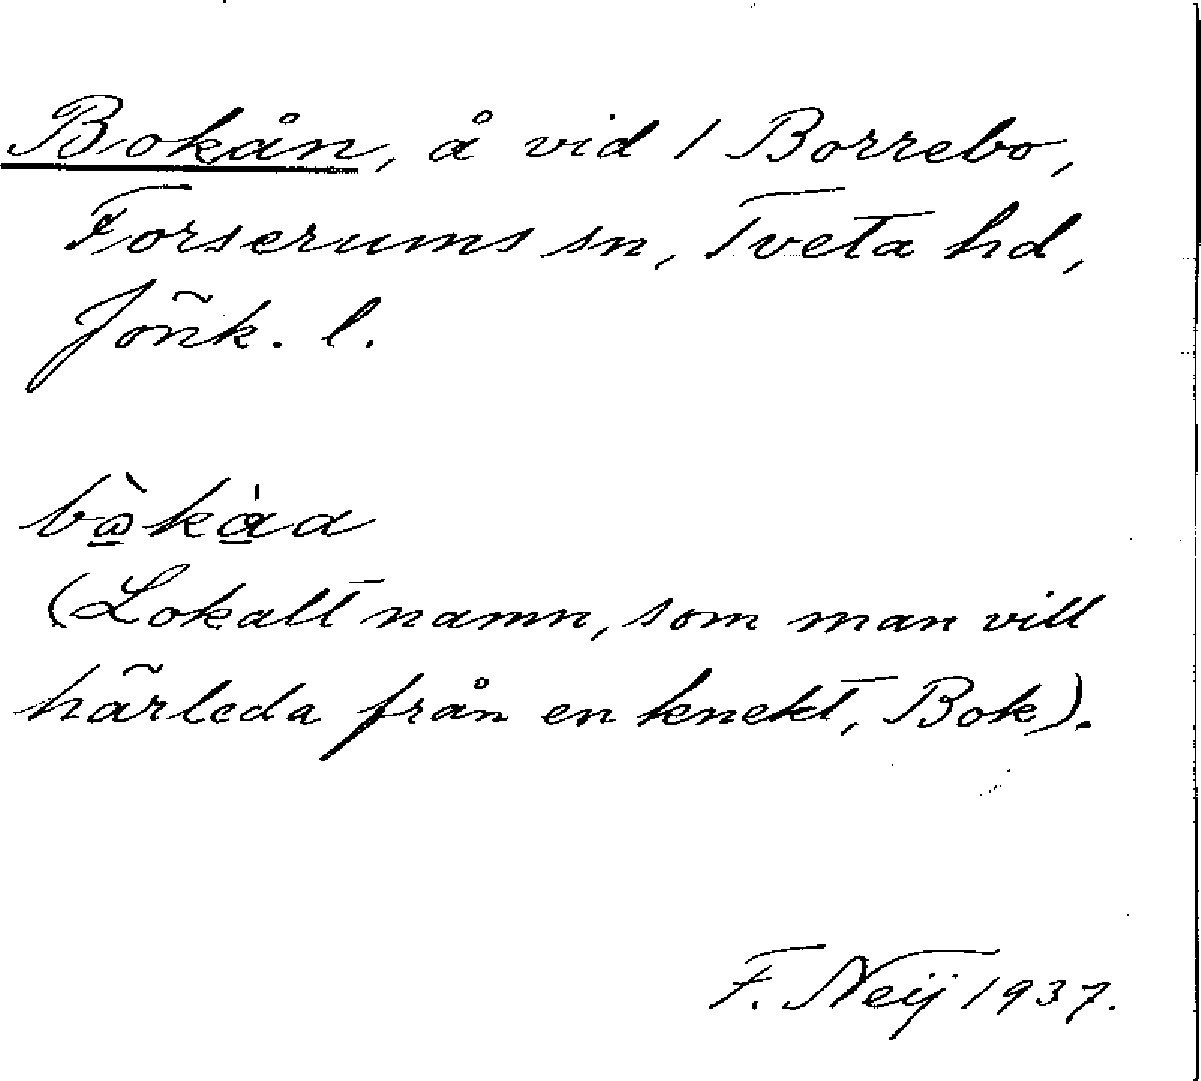 Bokån, å vid 1 Borrebo,
Forserums sn, Tveta hd,
Jönk. l.
(Lokalt namn, som man vill
härleda från en knekt, Bok).
F. Neij 1937.